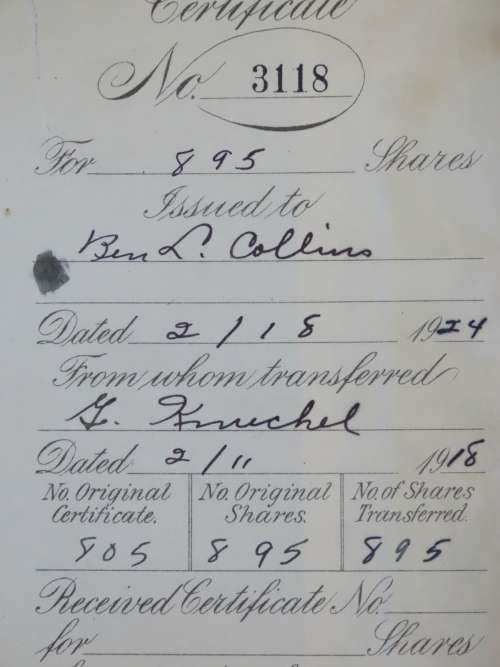 Certificate
No. 3118
For 895 Shares
Issued to
Ben L. Collins
Dated 2/18 1924
From whom transferred
G. Kruechel
Dated 2/11 1918
No. Original Certificate. No. Original Shares. No. of Shares Transferred.
805 895 895
Received Certificate No.
for Shares